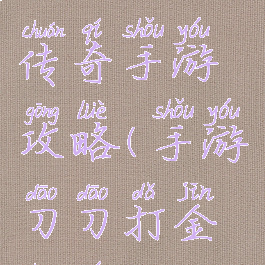 chuán qí shǒu yóu
传奇手游
gōng lüè ( shǒu yóu
攻略(手游
dāo dāo dǎ jīn
刀刀打金